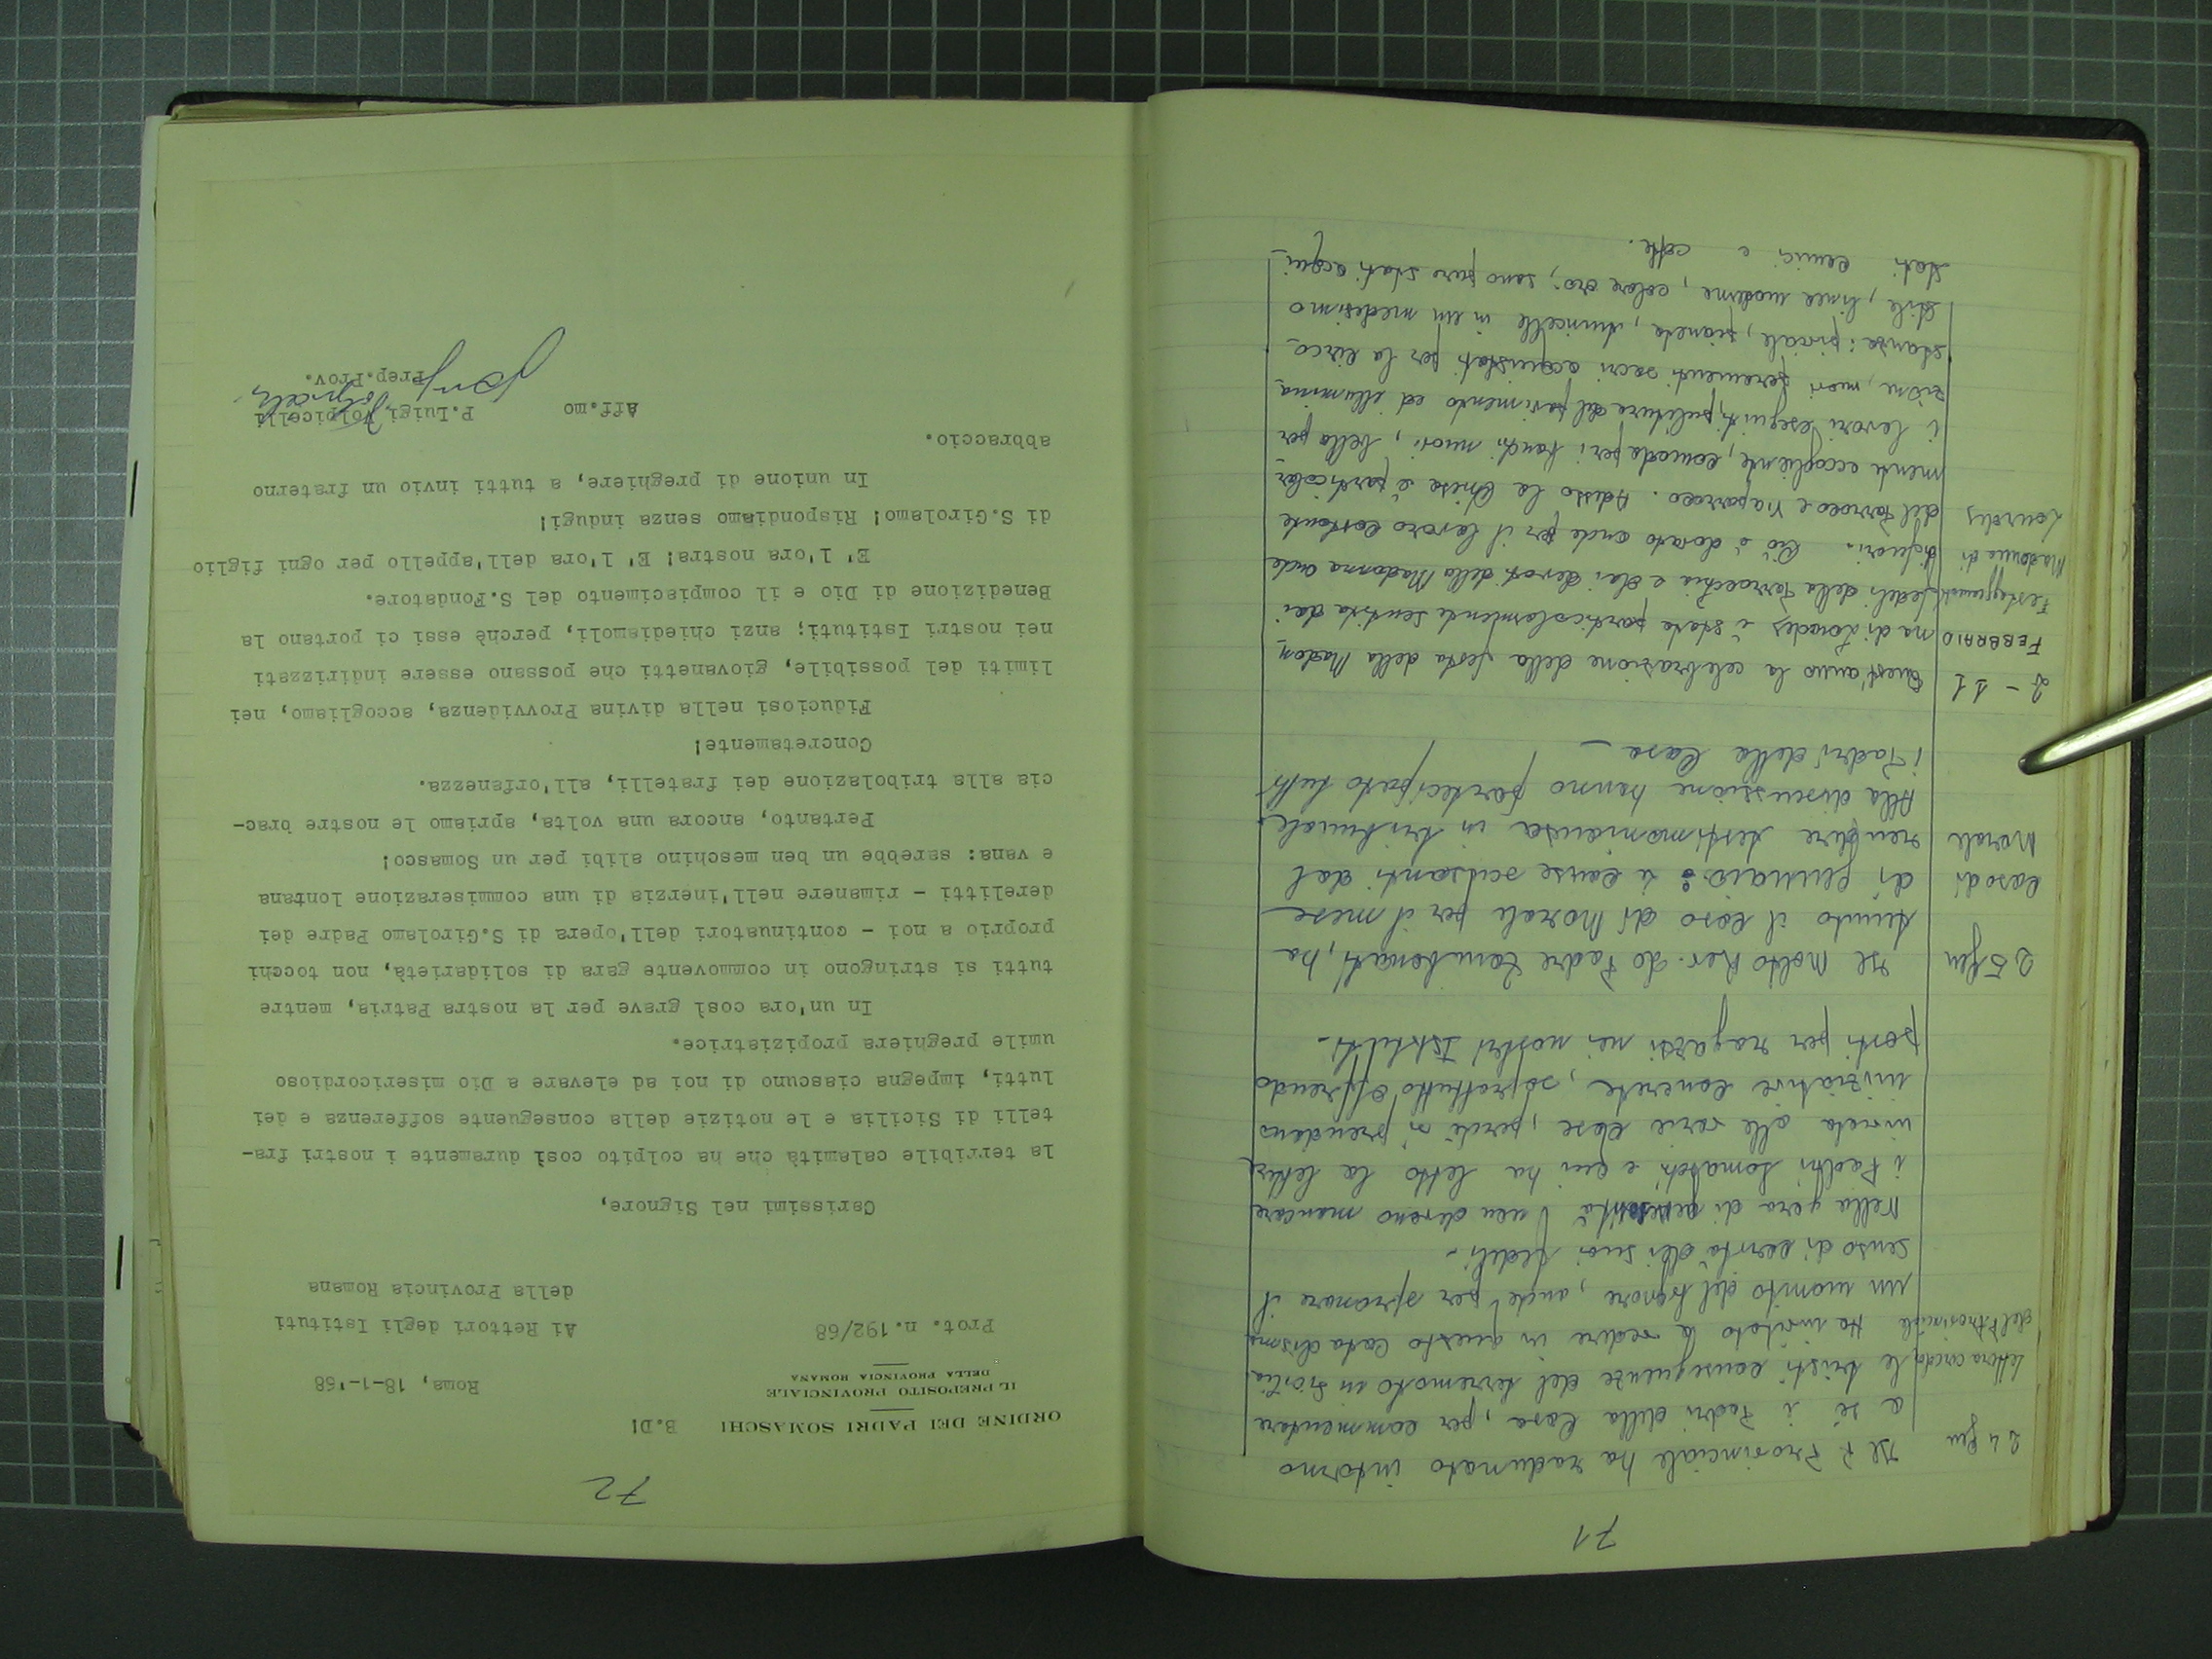 71
24 Gen
Il P. Provinciale ha radunato intorno
a sé i Padri della Casa, per commentare
lettera circolare
del P. Provinciale
le tristi conseguenze del terremoto in Sicilia.
Ha invitato a vedere in questo cataclisma
un monito del Signore, anche per spronare il
senso di carità dei suoi fedeli.-
Nella gara di non devono mancare
i Padri Somaschi e qui ha letto la lettera
inviata alle varie Case, perché si prendano
iniziative concrete, soprattutto offrendo
posti per ragazzi nei nostri Istituti.-
25 Gen
Caso di
Morale
Il Molto Rev.do Padre Zambonati, ha
tenuto il caso di Morale per il mese
di Gennaio: i cause scusanti dal
rendere testimonianza in tribunale.
Alla discussione hanno partecipato tutti
i Padri della Casa -
2 - 11
FEBBRAIO
Festeggiamenti
Madonna di
Lourdes
Quest'anno la celebrazione della festa della Madon
na di Lourdes è stata particolarmente sentita dai
fedeli della Parrocchia e dai devoti della Madonna anche
di fuori. Ciò è dovuto anche per il lavoro costante
del Parroco e Viceparroco. Adesso la Chiesa è particolar
mente accogliente, comoda per i banchi nuovi, bella per
i lavori eseguiti, pulitura del pavimento ed illumina
zione, nuovi paramenti sacri acquistati per la circo
stanza: piviale, pianeta, tunicelle in un medesimo
stile, linea moderna, colore oro; sono pure stati acqui
stati camici e cotte.
72
ORDINE DEI PADRI SOMASCHI
B.D!
IL PREPOSITO PROVINCIALE
DELLA PROVINCIA ROMANA
Roma, 18-1-'68
Prot. n.192/68
Ai Rettori degli Istituti
della Provincia Romana
Carissimi nel Signore,
la terribile calamità che ha colpito così duramente i nostri fra-
telli di Sicilia e le notizie della conseguente sofferenza e dei
lutti, impegna ciascuno di noi ad elevare a Dio misericordioso
umile preghiera propiziatrice.
In un'ora così grave per la nostra Patria, mentre
tutti si stringono in commovente gara di solidarietà, non tocchi
proprio a noi - continuatori dell'opera di S.Girolamo Padre dei
derelitti - rimanere nell'inerzia di una commiserazione lontana
e vana: sarebbe un ben meschino alibi per un Somasco!
Pertanto, ancora una volta, apriamo le nostre brac-
cia alla tribolazione dei fratelli, all'orfanezza.
Concretamente!
Fiduciosi nella divina Provvidenza, accogliamo, nei
limiti del possibile, giovanetti che possano essere indirizzati
nei nostri Istituti; anzi chiediamoli, perchè essi ci portano la
Benedizione di Dio e il compiacimento del S.Fondatore.
E' l'ora nostra! E' l'ora dell'appello per ogni figlio
di S.Girolamo! Rispondiamo senza indugi!
In unione di preghiere, a tutti invio un fraterno
abbraccio.
Aff.mo
P.Luigi Volpicelli
Prep.Prov.